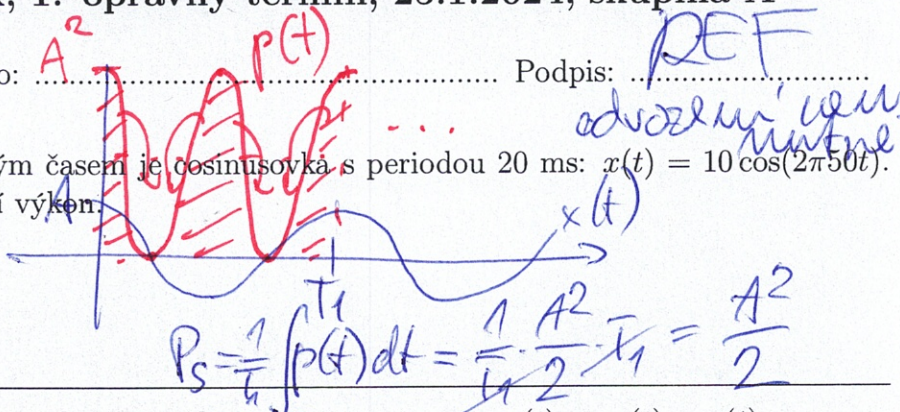 1. opravný termín, 25.1.2024, skupina A
A² p(t)
o: ........ Podpis: ........ REF
odvození není nutné
ým časem je cosinusovka s periodou 20 ms: x(t) = 10 cos(2π50t).
í výkon.
A x(t)
T₁
Pₛ = 1/T₁ ∫ p(t) dt = 1/T₁ · A²/2 · T₁ = A²/2